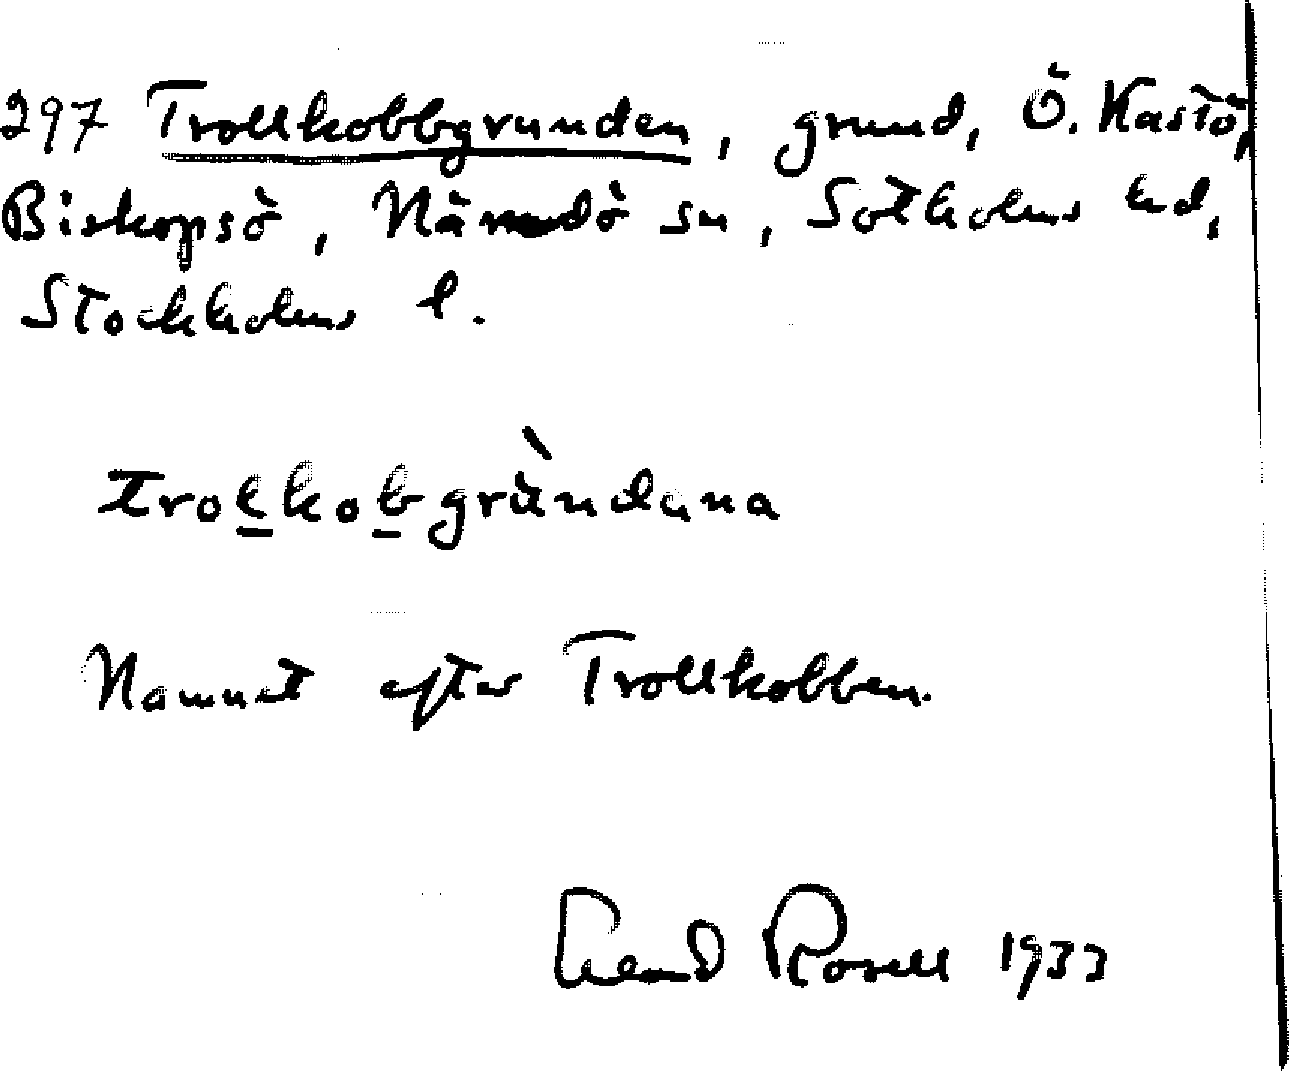 297 Trollkobbgrunden, grund, Ö. Kastö,
Biskopsö, Nämdö sn, Sotholms hd,
Stockholms l.
trolkobgrùndana
Namnet efter Trollkobben.
Rosell 1933